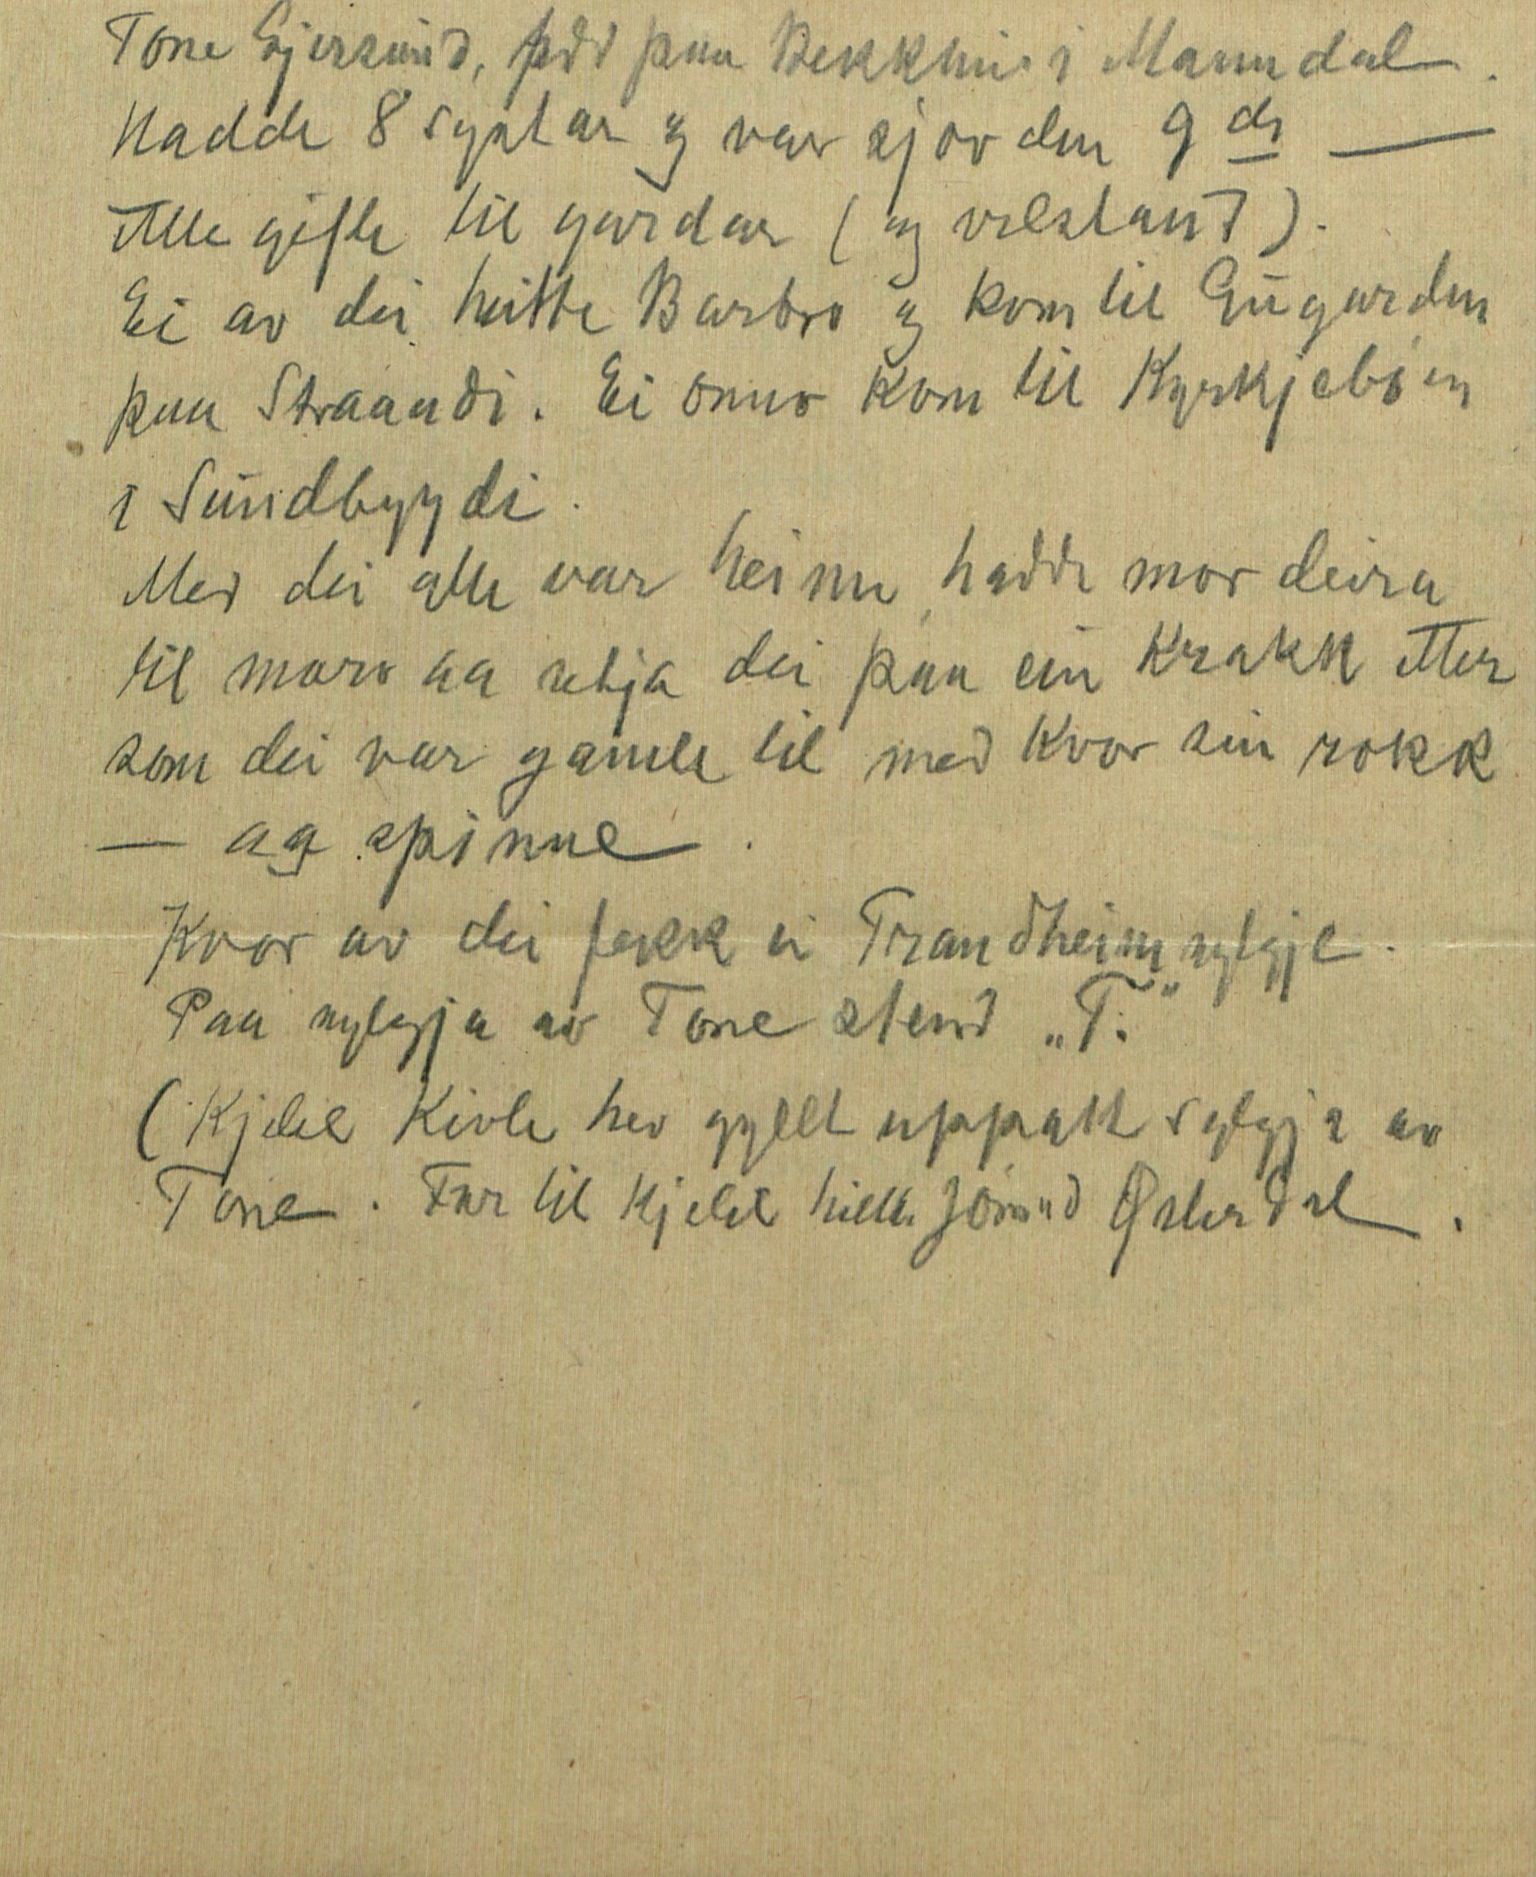 Tone Gjersund, född paa Bekkhus i Manndal.
Hadde 8 systar og var sjøv den 9 de —
Alle gifte til gardar (og velstand).
Ei av dei heitte Barbro og kom til Gugarden
paa Straandi. Ei onnor kom til Kyrkjebøen
i Sundbygdi.
Med dei alle var heime, hadde mor deira
til moro aa setja dei paa ein krakk etter
som dei var gamle til med kvor sin rokk
— aa spinne.
Kvor av dei fekk ei Trandheimsylgje.
Paa sylgja av Tone stend „T."
(Kjetil Kivle hev gyllt uppatt sylgja av
Tone. Far til Kjetil heitte Jörund Østerdal.